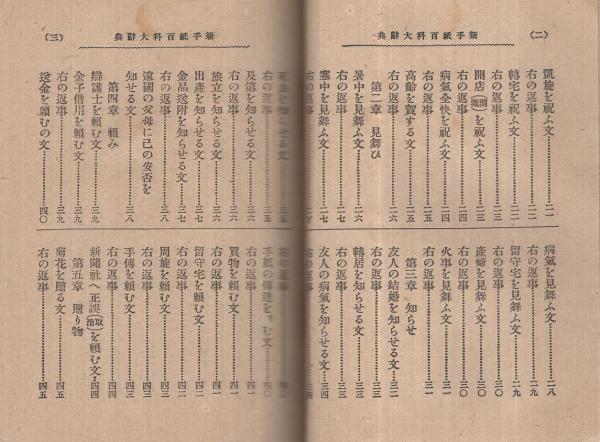 新手紙百科大辭典
(二)
凱旋を祝ふ文………二一
右の返事………二一
轉宅を祝ふ文………二二
右の返事………二三
開店(開業)を祝ふ文………二三
右の返事………二四
病氣全快を祝ふ文………二四
右の返事………二五
高齡を賀する文………二五
右の返事………二六
第二章 見舞ひ
暑中を見舞ふ文………二六
右の返事………二七
寒中を見舞ふ文………二七
右の返事
病氣を見舞ふ文………二八
右の返事………二九
留守宅を見舞ふ文………二九
右の返事………三〇
產婦を見舞ふ文………三〇
右の返事………三〇
火事を見舞ふ文………三一
右の返事………三一
第三章 知らせ
友人の結婚を知らせる文………三二
右の返事………三三
轉居を知らせる文………三三
右の返事………三三
友人の病氣を知らせる文………三四
右の返事
新手紙百科大辭典
(三)
を知らせる文………三五
右の返事………三五
及第を知らせる文………三五
右の返事………三六
旅立を知らせる文………三六
出產を知らせる文………三七
金品送附を知らせる文………三七
右の返事………三八
遠國の父母に己の安否を
知せる文………三八
第四章 賴み
辯護士を賴む文………三九
金子借用を賴む文………三九
右の返事………三九
送金を賴むの文………四〇
右の返事………四〇
手紙の傳達を む文………四〇
右の返事………四一
買物を賴む文………四一
右の返事………四一
留守宅を賴む文………四二
右の返事………四二
周旋を賴む文………四二
右の返事………四三
手傳を賴む文………四三
右の返事………四四
新聞社へ正誤(取消)を賴む文…四四
第五章 贈り物
菊花を贈る文………四五
右の返事………四五